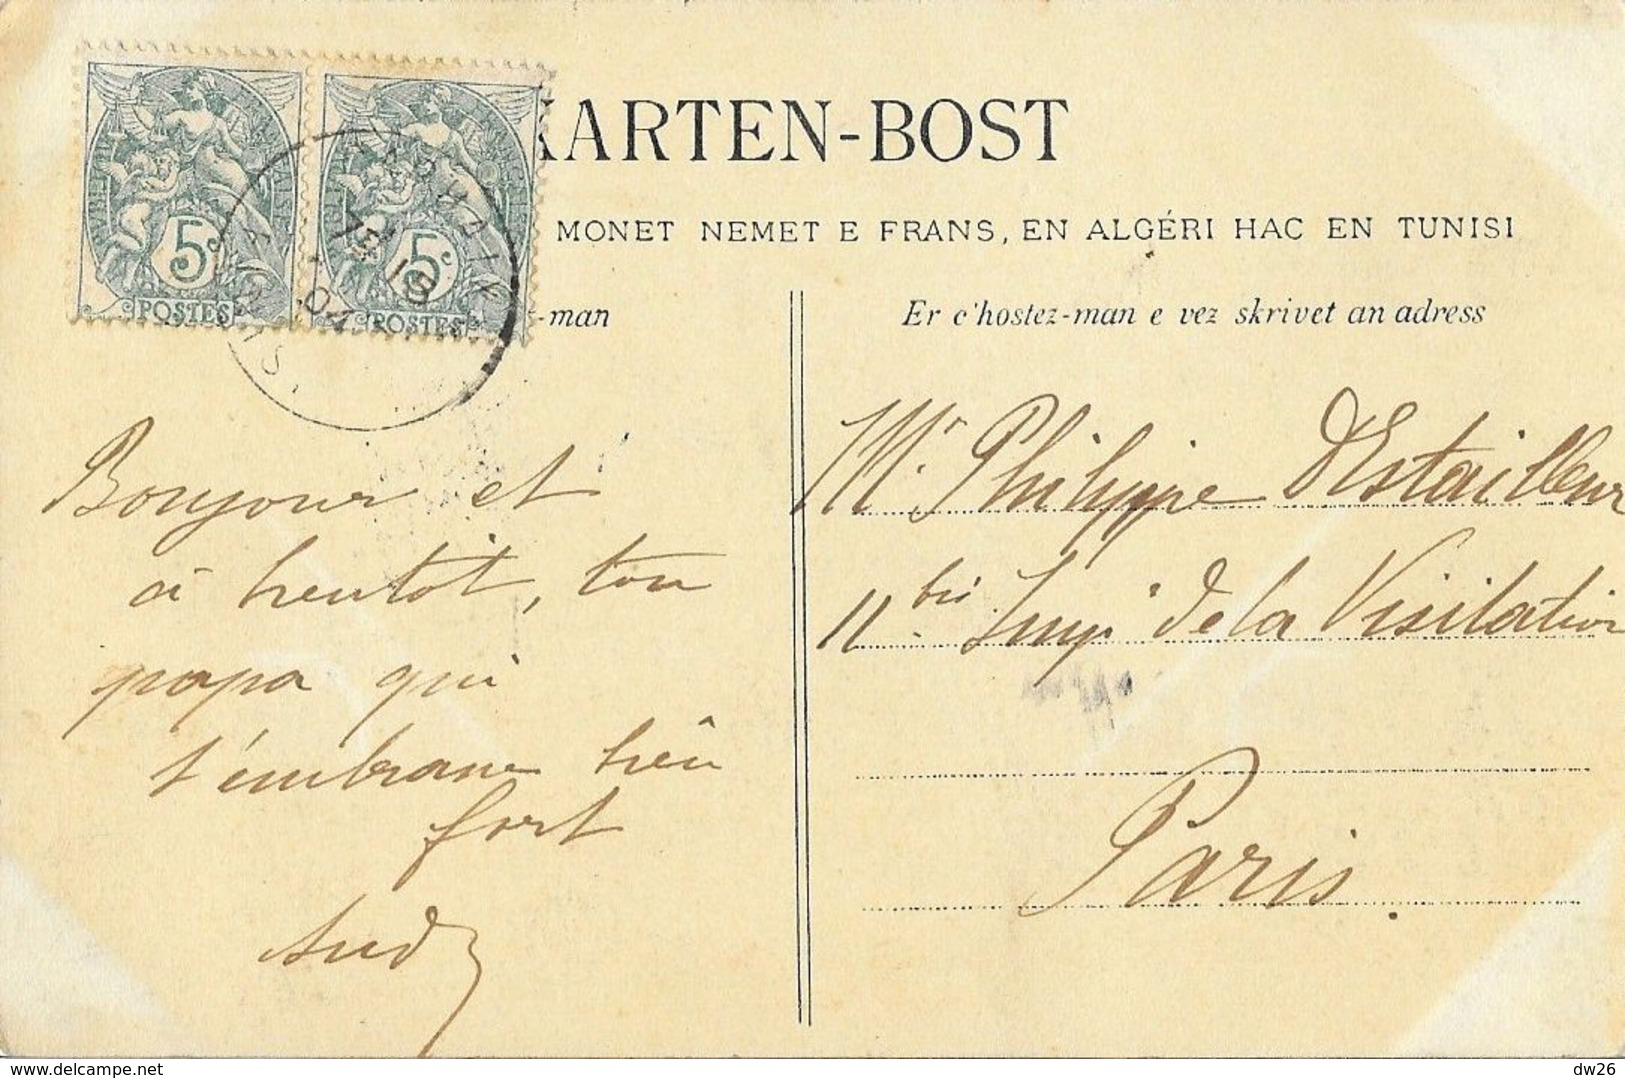 KARTEN-BOST
MONET NEMET E FRANS, EN ALGÉRI HAC EN TUNISI
-man
Er c'hostez-man e vez skrivet an adress
5c
POSTES
5c
POSTES
Bonjour et
à bientôt, ton
papa qui
t'embrasse bien
fort
Mr. Philippe d'Estailleur
11 bis Imp. de la Visitation
Paris.
www.delcampe.net
dw26